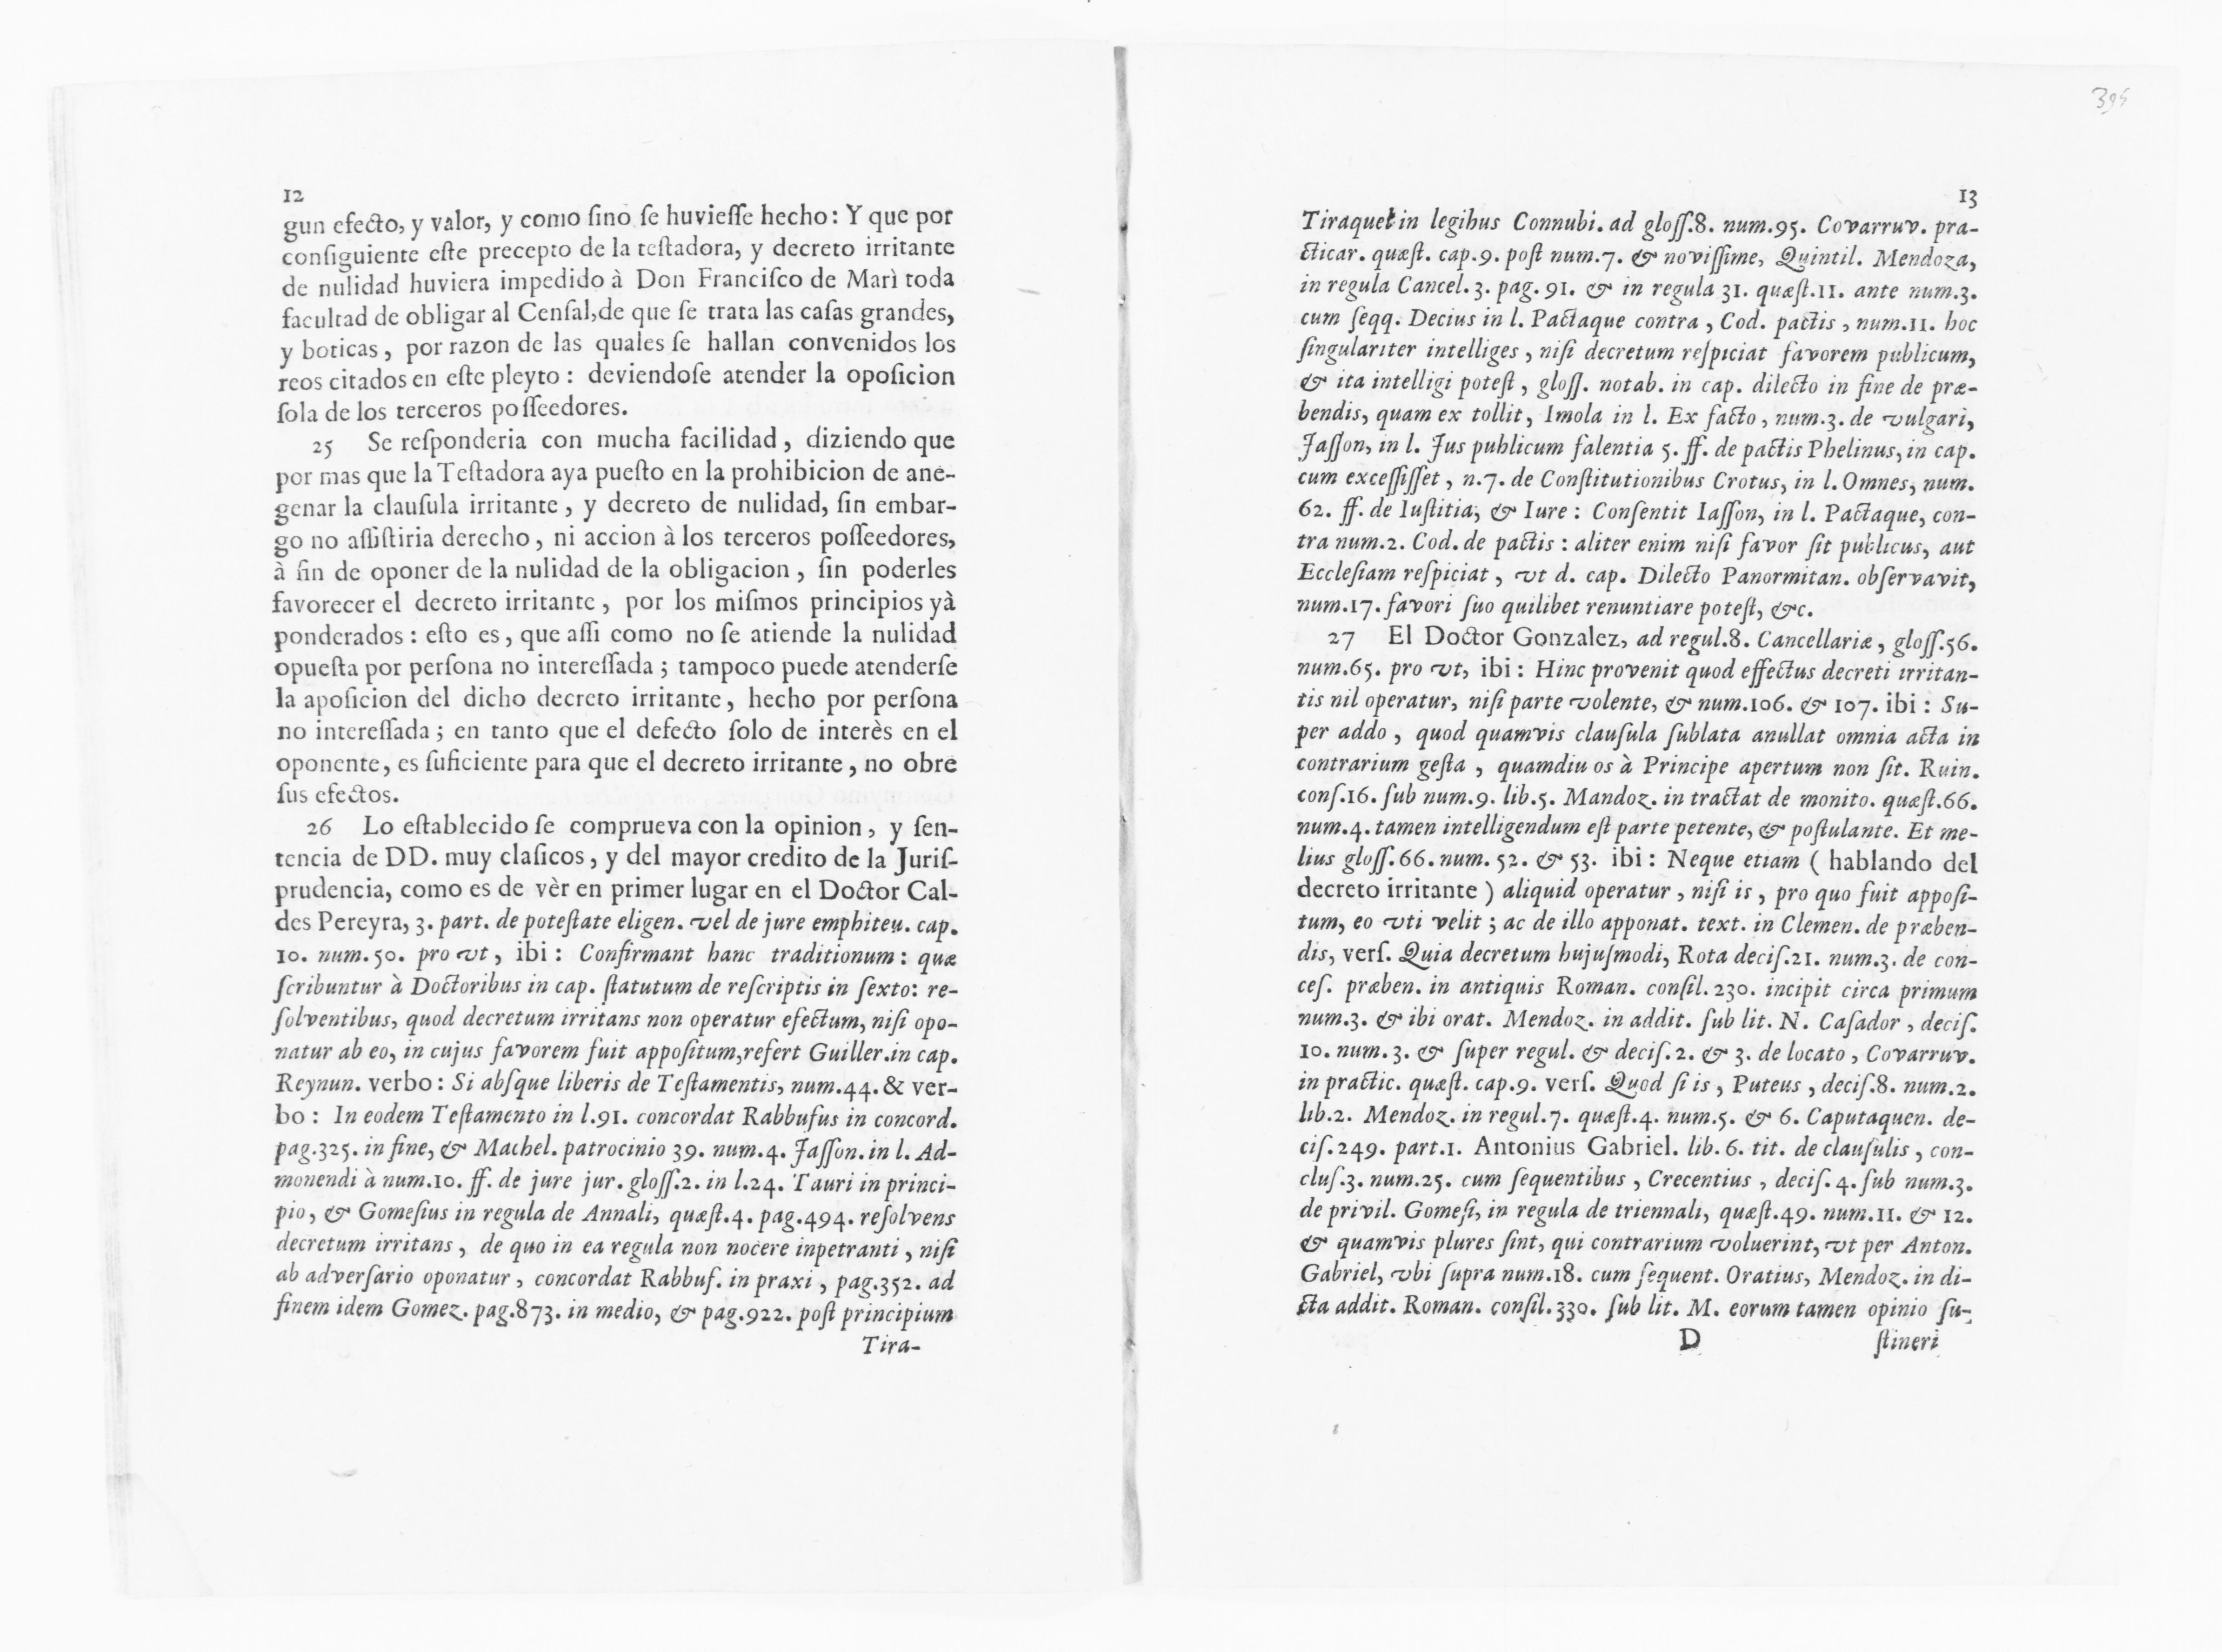 12
gun efecto, y valor, y como ſino ſe huvieſſe hecho: Y que por
conſiguiente eſte precepto de la teſtadora, y decreto irritante
de nulidad huviera impedido à Don Franciſco de Marì toda
facultad de obligar al Cenſal,de que ſe trata las caſas grandes,
y boticas, por razon de las quales ſe hallan convenidos los
reos citados en eſte pleyto: deviendoſe atender la opoſicion
ſola de los terceros poſſeedores.
25 Se reſponderia con mucha facilidad, diziendo que
por mas que la Teſtadora aya pueſto en la prohibicion de ane-
genar la clauſula irritante, y decreto de nulidad, ſin embar-
go no aſſiſtiria derecho, ni accion à los terceros poſſeedores,
à fin de oponer de la nulidad de la obligacion, ſin poderles
favorecer el decreto irritante, por los miſmos principios yà
ponderados: eſto es, que aſſi como no ſe atiende la nulidad
opueſta por perſona no intereſſada; tampoco puede atenderſe
la apoſicion del dicho decreto irritante, hecho por perſona
no intereſſada; en tanto que el defecto ſolo de interès en el
oponente, es ſuficiente para que el decreto irritante, no obre
ſus efectos.
26 Lo eſtablecido ſe comprueva con la opinion, y ſen-
tencia de DD. muy claſicos, y del mayor credito de la Juriſ-
prudencia, como es de vèr en primer lugar en el Doctor Cal-
des Pereyra, 3. part. de poteſtate eligen. vel de jure emphiteu. cap.
10. num. 50. pro vt, ibi: Confirmant hanc traditionum: quæ
ſcribuntur à Doctoribus in cap. ſtatutum de reſcriptis in ſexto: re-
ſolventibus, quod decretum irritans non operatur efectum, niſi opo-
natur ab eo, in cujus favorem fuit appoſitum,refert Guiller.in cap.
Reynun. verbo: Si abſque liberis de Teſtamentis, num.44. & ver-
bo: In eodem Teſtamento in l.91. concordat Rabbufus in concord.
pag.325. in fine, & Machel. patrocinio 39. num.4. Jaſſon. in l. Ad-
monendi à num.10. ff. de jure jur. gloſſ.2. in l.24. Tauri in princi-
pio, & Gomeſius in regula de Annali, quæſt.4. pag.494. reſolvens
decretum irritans, de quo in ea regula non nocere inpetranti, niſi
ab adverſario oponatur, concordat Rabbuf. in praxi, pag.352. ad
finem idem Gomez. pag.873. in medio, & pag.922. poſt principium
Tira-
395
13
Tiraquel in legibus Connubi. ad gloſſ.8. num.95. Covarruv. pra-
cticar. quæſt. cap.9. poſt num.7. & noviſſime, Quintil. Mendoza,
in regula Cancel. 3. pag. 91. & in regula 31. quæſt.11. ante num.3.
cum ſeqq. Decius in l. Pactaque contra, Cod. pactis, num.11. hoc
ſingulariter intelliges, niſi decretum reſpiciat favorem publicum,
& ita intelligi poteſt, gloſſ. notab. in cap. dilecto in fine de præ-
bendis, quam ex tollit, Imola in l. Ex facto, num.3. de vulgari,
Jaſſon, in l. Jus publicum falentia 5. ff. de pactis Phelinus, in cap.
cum exceſſiſſet, n.7. de Conſtitutionibus Crotus, in l. Omnes, num.
62. ff. de Iuſtitia, & Iure: Conſentit Iaſſon, in l. Pactaque, con-
tra num.2. Cod. de pactis: aliter enim niſi favor ſit publicus, aut
Eccleſiam reſpiciat, vt d. cap. Dilecto Panormitan. obſervavit,
num.17. favori ſuo quilibet renuntiare poteſt, &c.
27 El Doctor Gonzalez, ad regul.8. Cancellariæ, gloſſ.56.
num.65. pro vt, ibi: Hinc provenit quod effectus decreti irritan-
tis nil operatur, niſi parte volente, & num.106. & 107. ibi: Su-
per addo, quod quamvis clauſula ſublata anullat omnia acta in
contrarium geſta, quamdiu os à Principe apertum non ſit. Ruin.
conſ.16. ſub num.9. lib.5. Mandoz. in tractat de monito. quæſt.66.
num.4. tamen intelligendum eſt parte petente, & poſtulante. Et me-
lius gloſſ.66. num. 52. & 53. ibi: Neque etiam ( hablando del
decreto irritante ) aliquid operatur, niſi is, pro quo fuit appoſi-
tum, eo vti velit; ac de illo apponat. text. in Clemen. de præben-
dis, verſ. Quia decretum hujuſmodi, Rota deciſ.21. num.3. de con-
ceſ. præben. in antiquis Roman. conſil. 230. incipit circa primum
num.3. & ibi orat. Mendoz. in addit. ſub lit. N. Caſador, deciſ.
10. num. 3. & ſuper regul. & deciſ. 2. & 3. de locato, Covarruv.
in practic. quæſt. cap.9. verſ. Quod ſi is, Puteus, deciſ.8. num.2.
lib.2. Mendoz. in regul.7. quæſt.4. num.5. & 6. Caputaquen. de-
ciſ.249. part.1. Antonius Gabriel. lib. 6. tit. de clauſulis, con-
cluſ.3. num.25. cum ſequentibus, Crecentius, deciſ. 4. ſub num.3.
de privil. Gomeſi, in regula de triennali, quæſt.49. num.11. & 12.
& quamvis plures ſint, qui contrarium voluerint, vt per Anton.
Gabriel, vbi ſupra num.18. cum ſequent. Oratius, Mendoz. in di-
cta addit. Roman. conſil. 330. ſub lit. M. eorum tamen opinio ſu-
D ſtineri